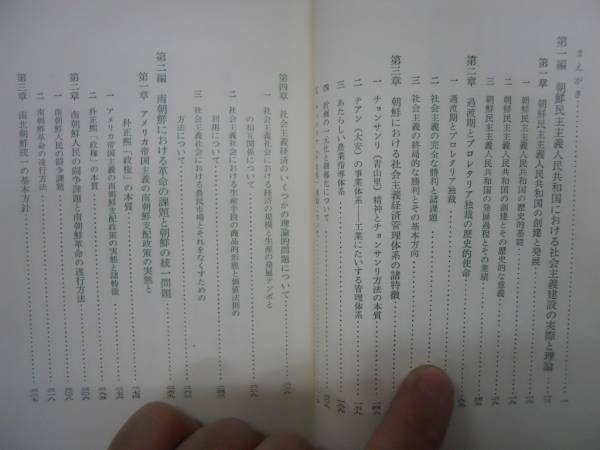 まえがき
第一編 朝鮮民主主義人民共和国における社会主義建設の実際と理論
第一章 朝鮮民主主義人民共和国の創建と発展
一 朝鮮民主主義人民共和国の歴史的基礎
二 朝鮮民主主義人民共和国の創建とその歴史的な意義
三 朝鮮民主主義人民共和国の発展過程とその業績
第二章 過渡期とプロレタリア独裁の歴史的使命
一 過渡期とプロレタリア独裁
二 社会主義の完全な勝利と諸課題
三 社会主義の終局的な勝利とその基本方向
第三章 朝鮮における社会主義経済管理体系の諸特徴
一 チョンサンリ(青山里)精神とチョンサンリ方法の本質
二 テアン(大安)の事業体系――工業にたいする管理体系
三 あたらしい農業指導体系
四 計画の一元化と細部化について
第四章 社会主義経済のいくつかの理論的問題について
一 社会主義社会における経済の規模と生産の発展テンポと
の相互関係について
二 社会主義社会における生産手段の商品的形態と価値法則の
利用について
三 社会主義社会における農民市場とそれをなくすための
方法について
第二編 南朝鮮における革命の課題と朝鮮の統一問題
第一章 アメリカ帝国主義の南朝鮮支配政策の実態と
朴正熙「政権」の本質
一 アメリカ帝国主義の南朝鮮支配政策の実態と諸特徴
二 朴正熙「政権」の本質
第二章 南朝鮮人民の闘争課題と南朝鮮革命の遂行方法
一 南朝鮮人民の闘争課題
二 南朝鮮革命の遂行方法
第三章 南北朝鮮統一の基本方針